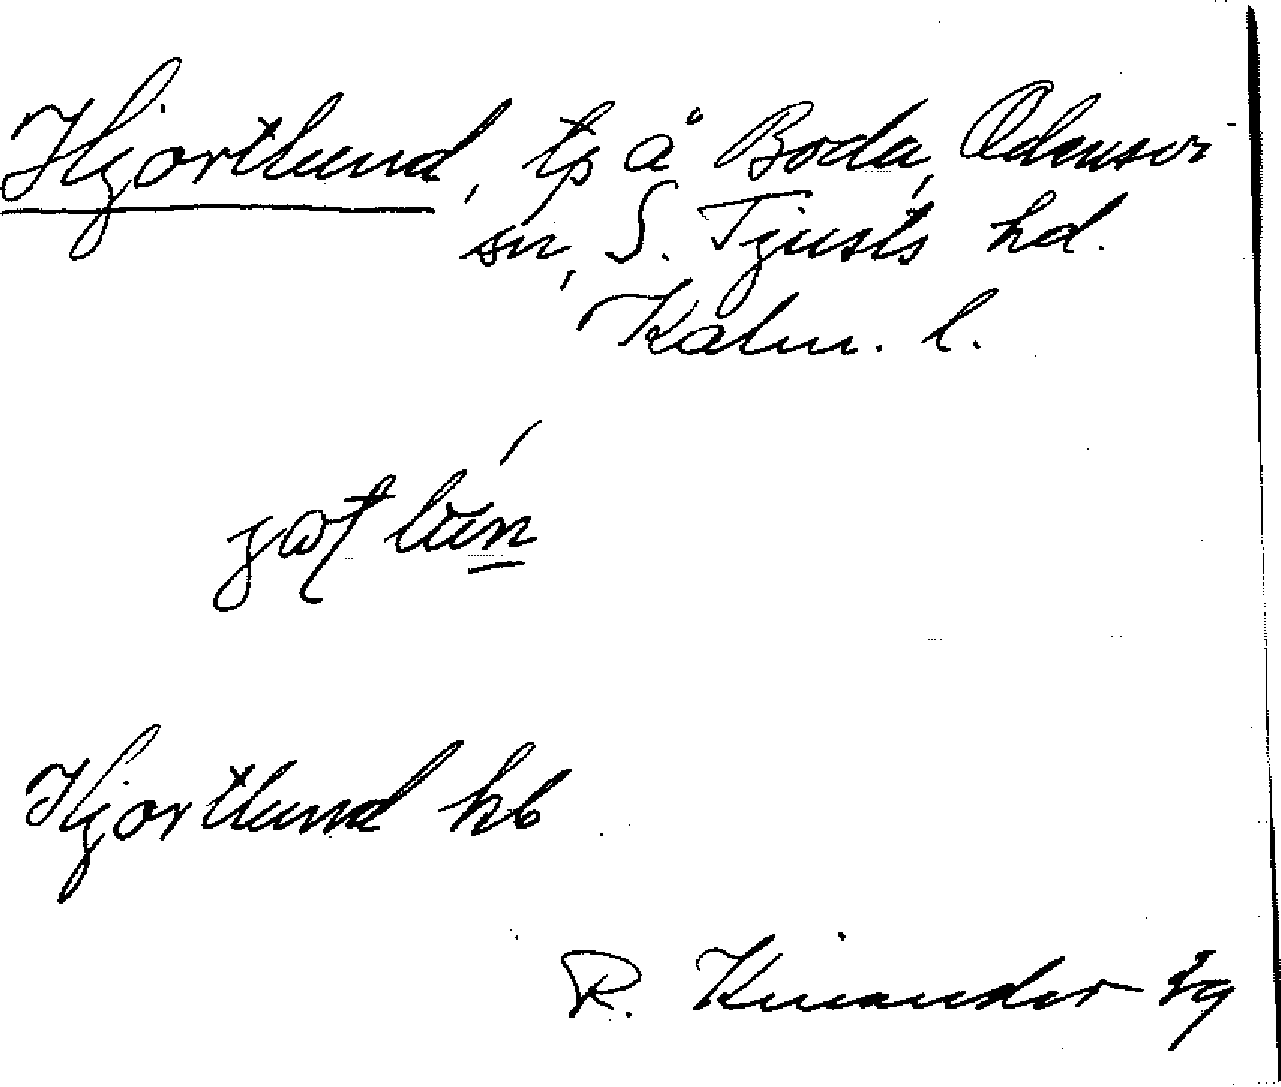 Hjortlund, tp å Boda, Odensvi
sn, S. Tjusts hd.
Kalm. l.
Hjortlund kb
R. Kinander